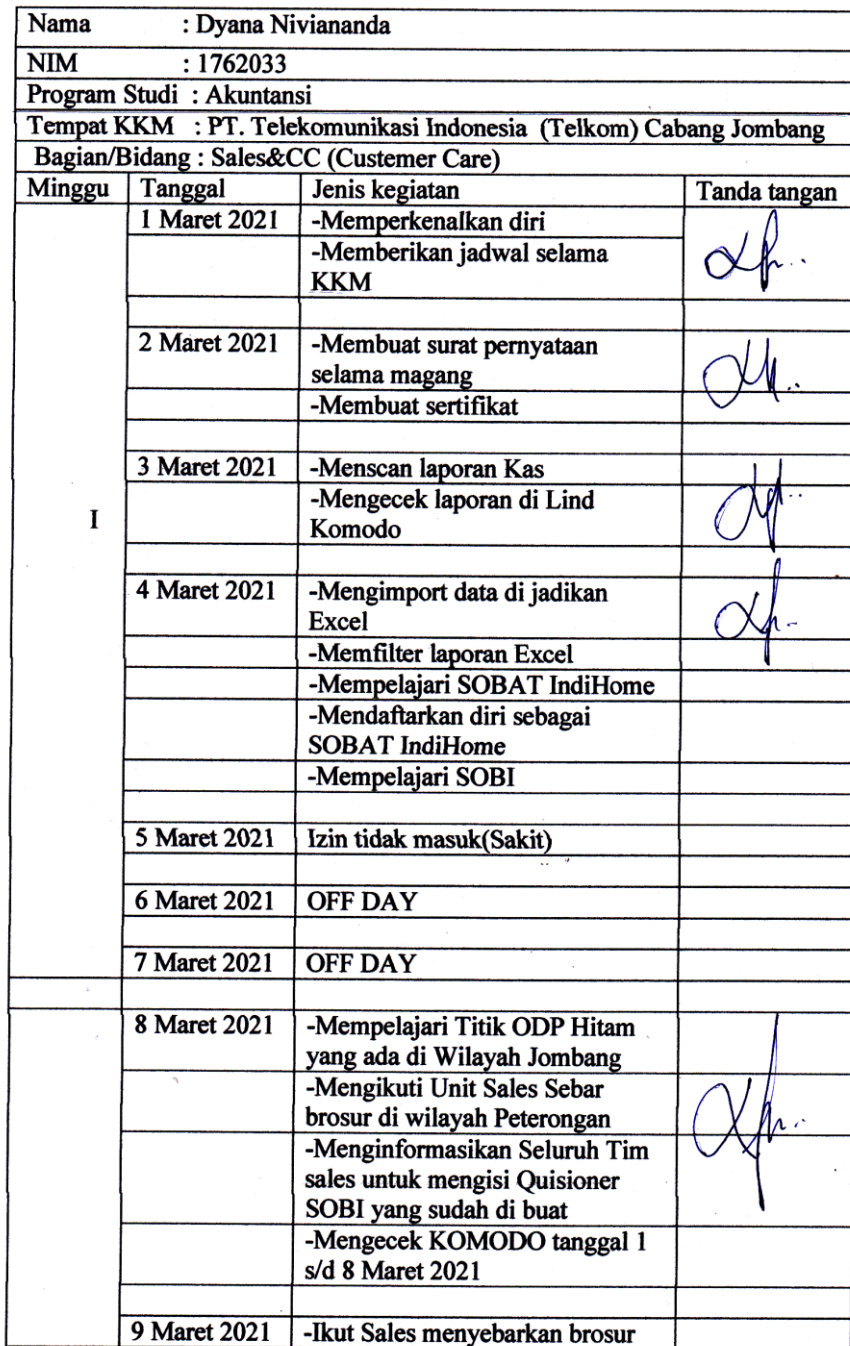 Nama : Dyana Niviananda
NIM : 1762033
Program Studi : Akuntansi
Tempat KKM : PT. Telekomunikasi Indonesia (Telkom) Cabang Jombang
Bagian/Bidang : Sales&CC (Custemer Care)
Minggu Tanggal Jenis kegiatan Tanda tangan
1 Maret 2021 -Memperkenalkan diri
-Memberikan jadwal selama
KKM
2 Maret 2021 -Membuat surat pernyataan
selama magang
-Membuat sertifikat
3 Maret 2021 -Menscan laporan Kas
I -Mengecek laporan di Lind
Komodo
4 Maret 2021 -Mengimport data di jadikan
Excel
-Memfilter laporan Excel
-Mempelajari SOBAT IndiHome
-Mendaftarkan diri sebagai
SOBAT IndiHome
-Mempelajari SOBI
5 Maret 2021 Izin tidak masuk(Sakit)
6 Maret 2021 OFF DAY
7 Maret 2021 OFF DAY
8 Maret 2021 -Mempelajari Titik ODP Hitam
yang ada di Wilayah Jombang
-Mengikuti Unit Sales Sebar
brosur di wilayah Peterongan
-Menginformasikan Seluruh Tim
sales untuk mengisi Quisioner
SOBI yang sudah di buat
-Mengecek KOMODO tanggal 1
s/d 8 Maret 2021
9 Maret 2021 -Ikut Sales menyebarkan brosur